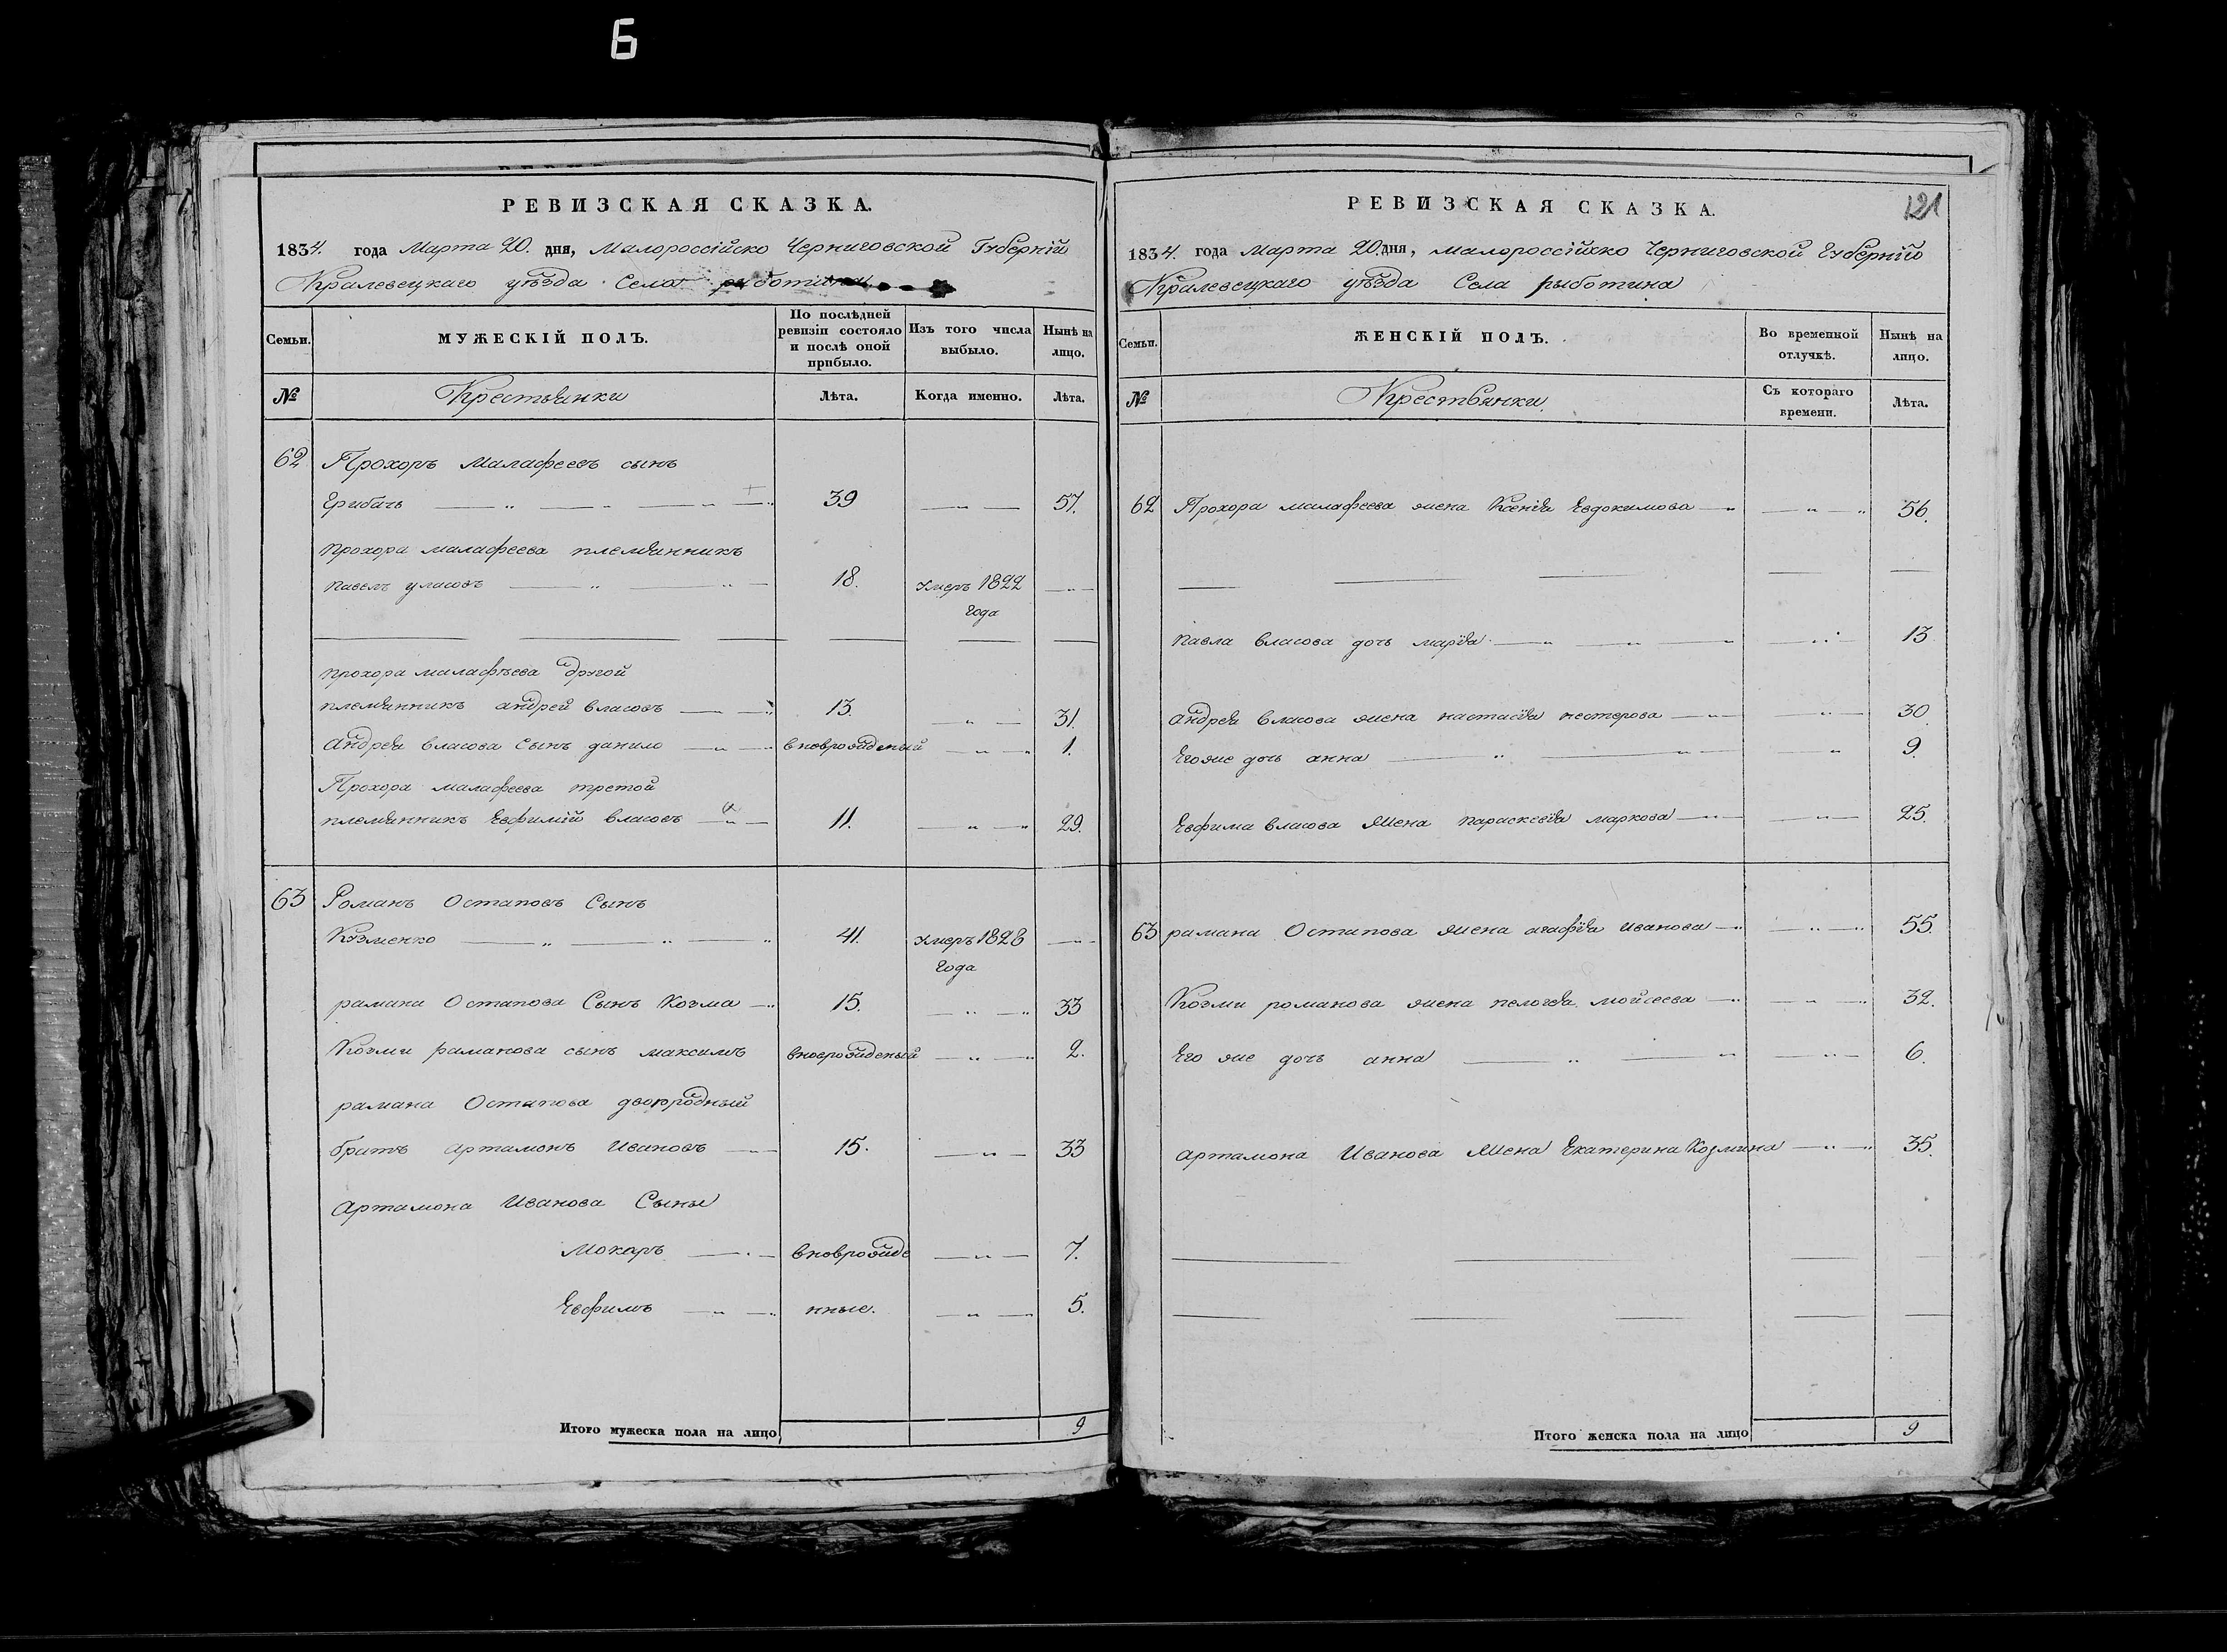 Б
РЕВИЗСКАЯ СКАЗКА.
1834. года Марта 20. дня, Малороссійско Черниговской Губерніи
Кралевецкаго уѣзда Села рыботина
Семьи.
МУЖЕСКІЙ ПОЛЪ.
По послѣдней ревизіи состояло и послѣ оной прибыло.
Изъ того числа выбыло.
Нынѣ на лицо.
№
Крестьянки
Лѣта.
Когда именно.
Лѣта.
62 Прохоръ Малафеевъ сынъ
Грибачь 39 57.
Прохора малафеева племянникъ
павелъ уласовъ 18. Умеръ 1822
Года
прохора малафѣева другой
племянникъ андрей власовъ 13. 31.
андрея власова сынъ данило вноврожденый 1.
Прохора малафеева третой
племянникъ Евфимій власовъ 11. 29.
63 Романъ Остаповъ Сынъ
Кузменко 41. Умеръ 1828
Года
рамана Остапова Сынъ Козма 15. 33
Козми раманова сынъ максимъ вноврожденый 2.
рамана Остапова двоюродный
братъ артамонъ Ивановъ 15. 33
Артамона Иванова Сыны
Мокаръ вноврожде 7.
Евфимъ нные. 5.
Итого мужеска пола на лицо 9
РЕВИЗСКАЯ СКАЗКА.
121
1834. года Марта 20. дня, малороссійско Черниговской Губерніи
Кралевецкаго уѣзда Села рыботина
Семьи.
ЖЕНСКІЙ ПОЛЪ.
Во временной отлучкѣ.
Нынѣ на лицо.
№
Крестьянки.
Съ котораго времени.
Лѣта.
62 Прохора малафеева жена Ксенія Евдокимова 56.
павла власова дочь марія 13
андрея власова жена настасія нестерова 30
Его же дочь анна 9.
Евфима власова Жена параскевія маркова 25.
63 рамана Остапова жена агафія иванова 55.
Козми романова жена пелогея мойсеева 32.
Его же дочь анна 6.
артамона Иванова Жена Екатерина Козмина 35.
Итого женска пола на лицо 9